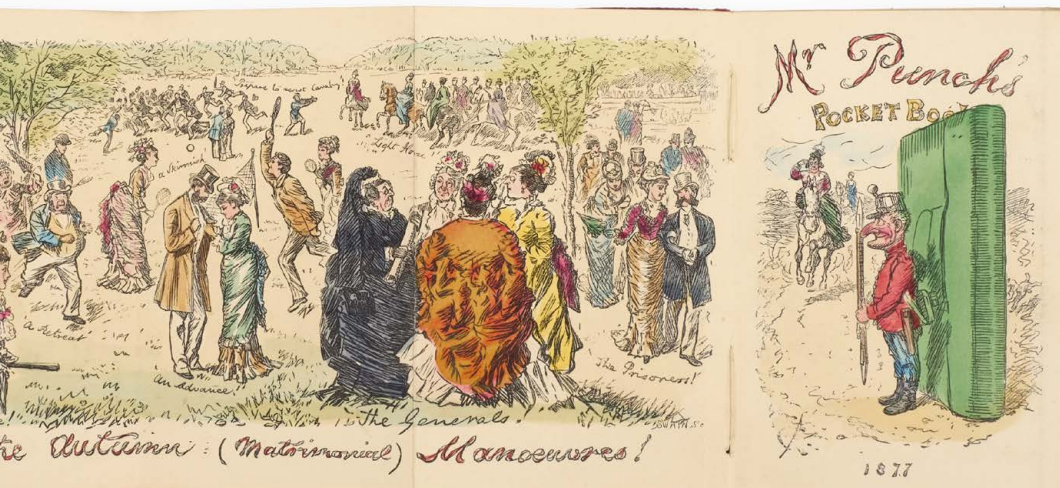 Prepare to receive Cavalry
a Skirmish
a Retreat
An Advance!
The Generals.
The Prisoners!
SWAIN Sc
the Autumn (Matrimonial) Manoeuvres!
Mr Punch's
POCKET BOO
1877